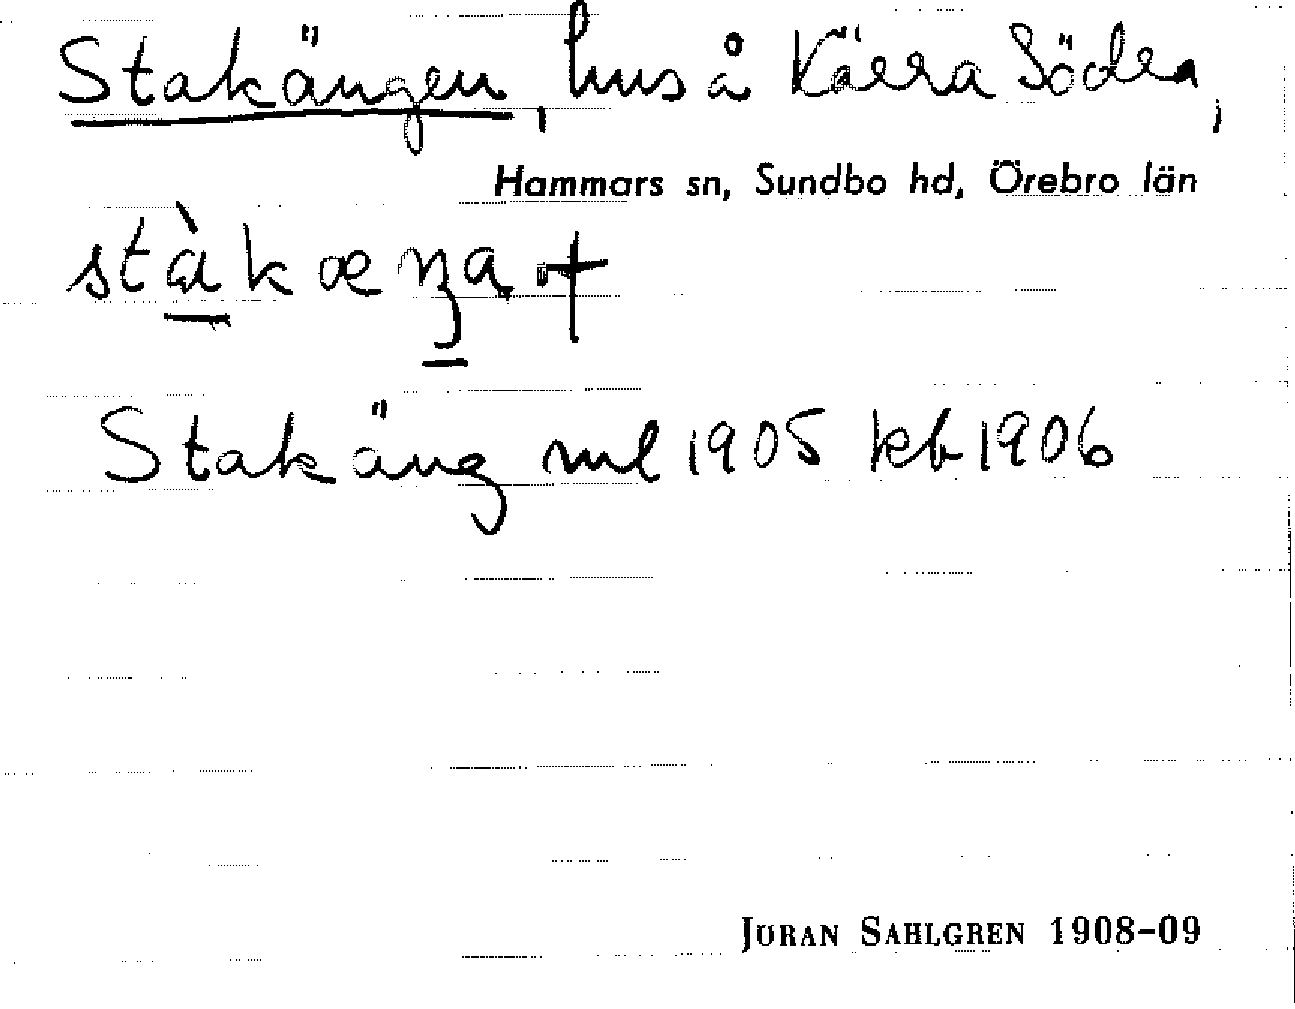 Stakängen, hus å Kärra Södra,
Hammars sn, Sundbo hd, Örebro län
stàkæŋa +
Stakäng ml 1905 kb 1906
JÖRAN SAHLGREN 1908-09